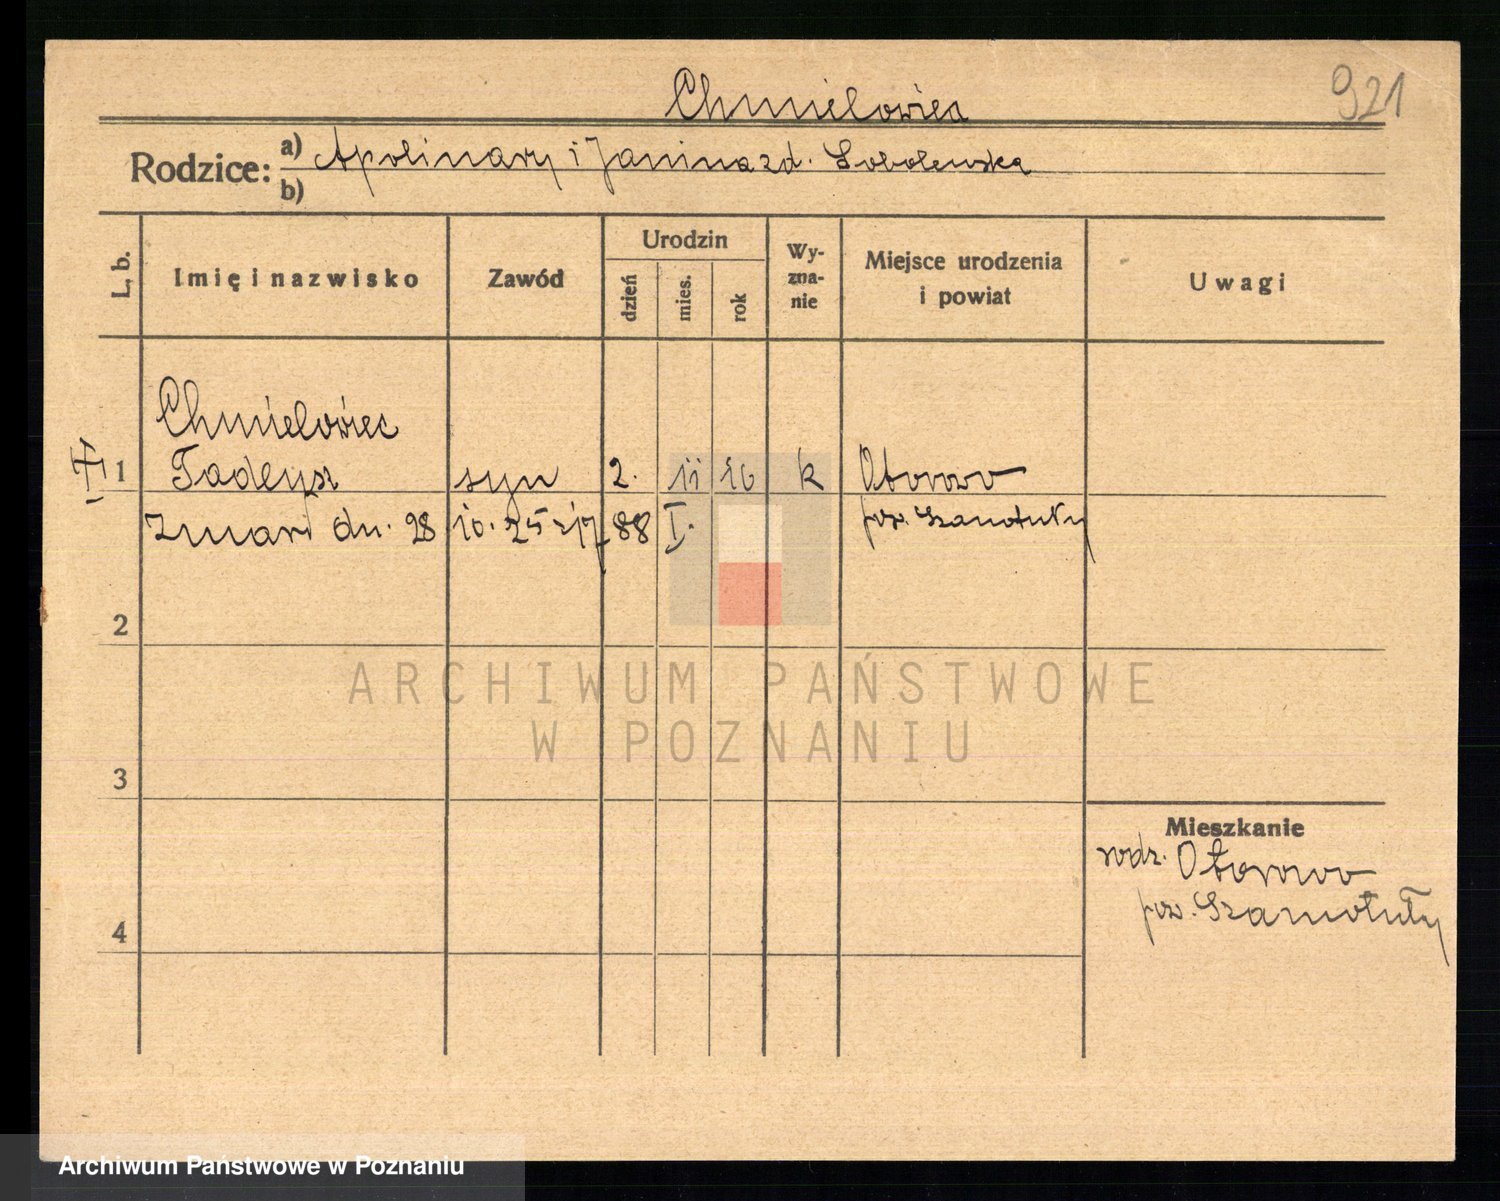 921
Chmielowiec
Rodzice: a) Apolinary i Janina zd. Sobolewska
b)
L. b. Imię i nazwisko Zawód Urodzin dzień mies. rok Wy-zna-nie Miejsce urodzenia i powiat Uwagi
Chmielowiec
1 Tadeusz syn 2. 11 16 k Otorowo
Zmarł dn. 28 10. 25 r. 17 88 I. pow. Szamotuły
2
ARCHIWUM PAŃSTWOWE
W POZNANIU
3
Mieszkanie
rodz. Otorowo
pow. Szamotuły
4
Archiwum Państwowe w Poznaniu